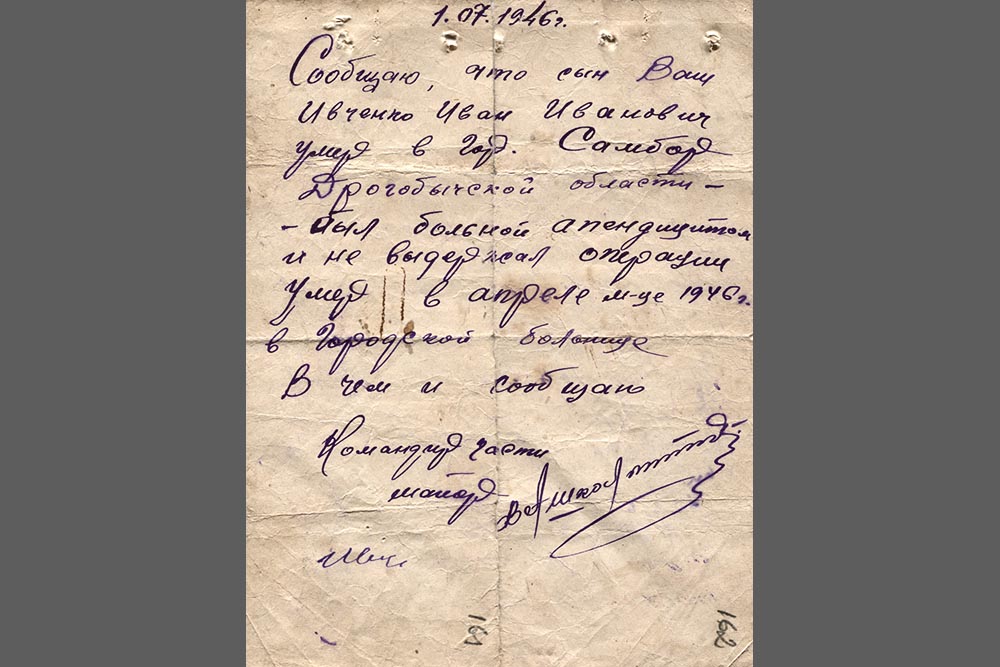 1.07.1946г.
Сообщаю, что сын Ваш
Ивченко Иван Иванович
умер в Гор. Самбор
Дрогобычской области –
– был больной апендицитом
и не выдержал операции
Умер в апреле м-це 1946г.
в Городской больнице
В чем и сообщаю
Командир части
майор
161
162